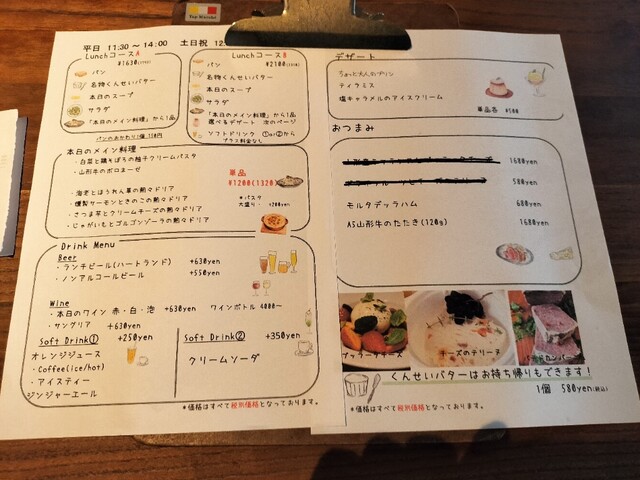 平日 11:30～14:00 土日祝 12
LunchコースA
¥1630
パン
名物くんせいバター
本日のスープ
サラダ
「本日のメイン料理」から1品
パンのおかわり2個 150円
LunchコースB
¥2100
パン
名物くんせいバター
本日のスープ
サラダ
「本日のメイン料理」から1品
選べるデザート 次のページ
ソフトドリンク ①or②から
プラス料金なし
本日のメイン料理
・白菜と鶏そぼろの柚子クリームパスタ
・山形牛のボロネーゼ
・海老とほうれん草の熱々ドリア
・燻製サーモンときのこの熱々ドリア
・さつま芋とクリームチーズの熱々ドリア
・じゃがいもとゴルゴンゾーラの熱々ドリア
単品
¥1200(1320)
*パスタ
大盛り・ +200yen
Drink Menu
Beer
・ランチビール(ハートランド) +630yen
・ノンアルコールビール +550yen
Wine
・本日のワイン 赤・白・泡 +630yen ワインボトル 4000～
・サングリア +630yen
Soft Drink① +250yen
オレンジジュース
・Coffee(ice/hot)
・アイスティー
ジンジャーエール
Soft Drink② +350yen
クリームソーダ
*価格はすべて税別価格となっております。
デザート
ちょっと大人のプリン
ティラミス
塩キャラメルのアイスクリーム
単品各 ¥500
おつまみ
1680yen
580yen
モルタデッラハム 680yen
A5山形牛のたたき(120g) 1680yen
ブッラータチーズ
チーズのテリーヌ
くんせいバターはお持ち帰りもできます！
1個 580yen(税込)
*価格はすべて税別価格となっております。